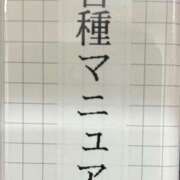 各種マニュア